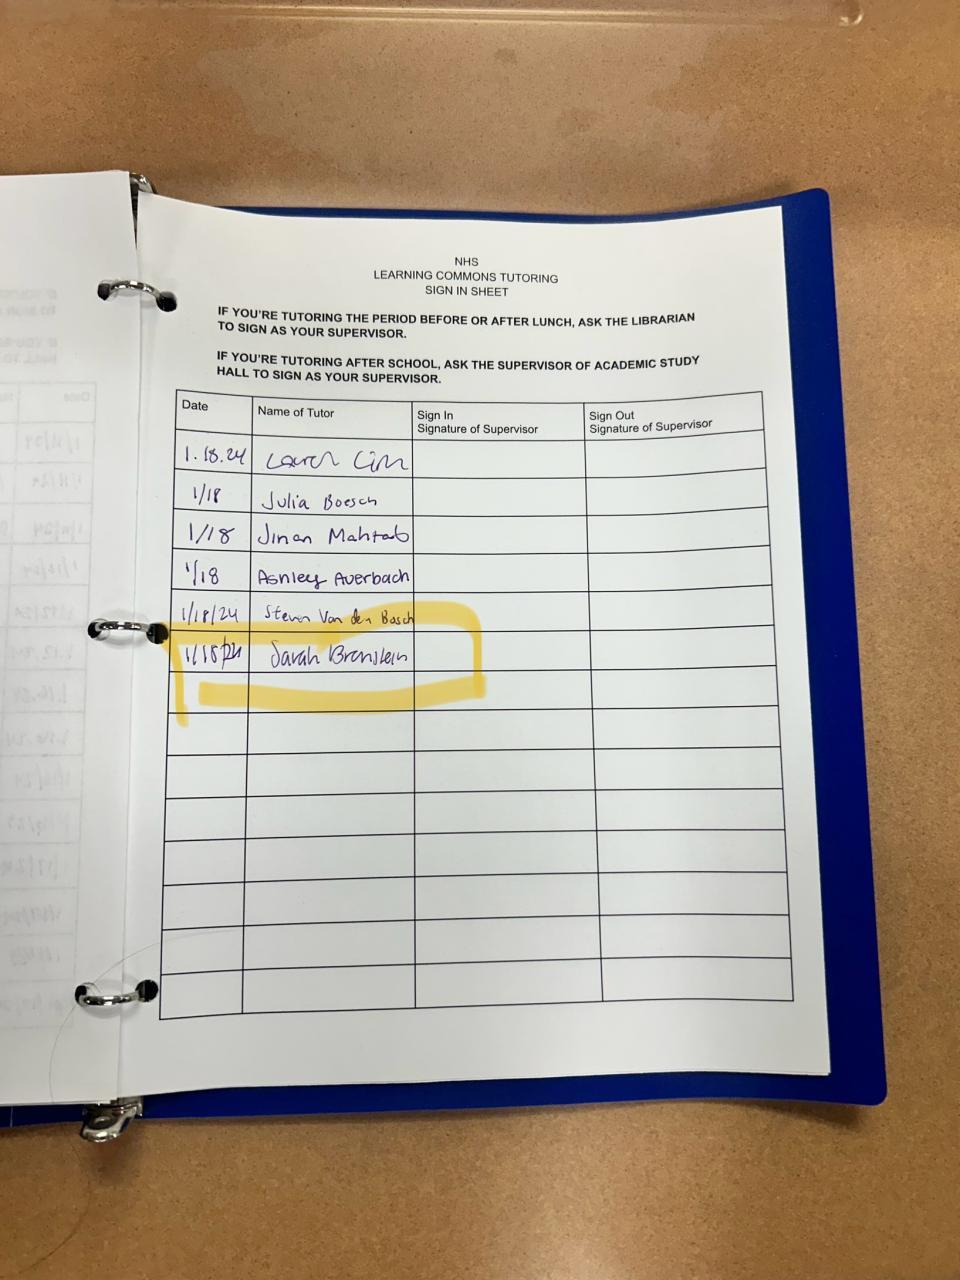 NHS
LEARNING COMMONS TUTORING
SIGN IN SHEET
IF YOU'RE TUTORING THE PERIOD BEFORE OR AFTER LUNCH, ASK THE LIBRARIAN
TO SIGN AS YOUR SUPERVISOR.
IF YOU'RE TUTORING AFTER SCHOOL, ASK THE SUPERVISOR OF ACADEMIC STUDY
HALL TO SIGN AS YOUR SUPERVISOR.
Date Name of Tutor Sign In Sign Out
Signature of Supervisor Signature of Supervisor
1.18.24 Lauren
1/18 Julia Boesch
1/18 Jinan Mahtab
1/18 Ashley Averbach
1/18/24 Steven Van den Bosch
1/18/24 Sarah